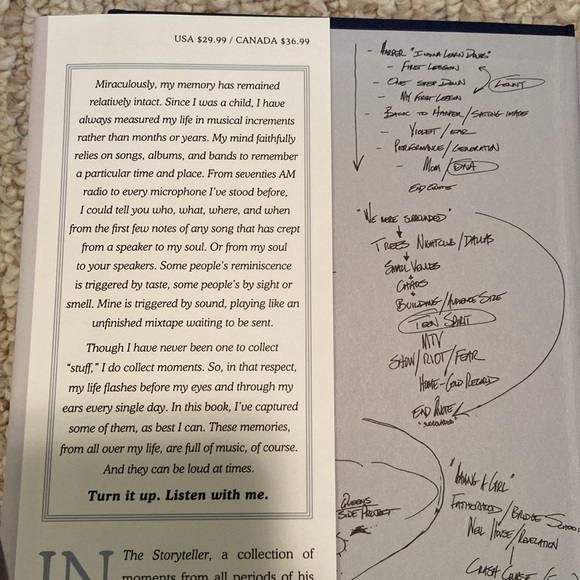 USA $29.99 / CANADA $36.99
Miraculously, my memory has remained
relatively intact. Since I was a child, I have
always measured my life in musical increments
rather than months or years. My mind faithfully
relies on songs, albums, and bands to remember
a particular time and place. From seventies AM
radio to every microphone I've stood before,
I could tell you who, what, where, and when
from the first few notes of any song that has crept
from a speaker to my soul. Or from my soul
to your speakers. Some people's reminiscence
is triggered by taste, some people's by sight or
smell. Mine is triggered by sound, playing like an
unfinished mixtape waiting to be sent.
Though I have never been one to collect
"stuff," I do collect moments. So, in that respect,
my life flashes before my eyes and through my
ears every single day. In this book, I've captured
some of them, as best I can. These memories,
from all over my life, are full of music, of course.
And they can be loud at times.
Turn it up. Listen with me.
IN The Storyteller, a collection of
moments from all periods of his
- HARPER "I WANNA LEARN DRUMS"
- FIRST LESSON
- ONE STEP DOWN
LENNY
- MY FIRST LESSON
- BACK TO HARPER/SAYING IMAGE
- VIOLET/EAR
- PERFORMANCE/GENERATION
- MOM/DNA
END QUOTE
"WE WERE SURROUNDED"
TREES NIGHTCLUB/DALLAS
SMALL VENUES
CHAOS
BUILDING/AUDIENCE SIZE
TEEN SPIRIT
MTV
SHOW/RIOT/FEAR
HOME-GOLD RECORD
END QUOTE
"SURROUNDED"
QUEENS
SIDE PROJECT
"YOUNG & GIRL"
FATHERHOOD/BRIDGE SCHOOL
NEIL HOUSE/REVELATION
CRASH COURSE